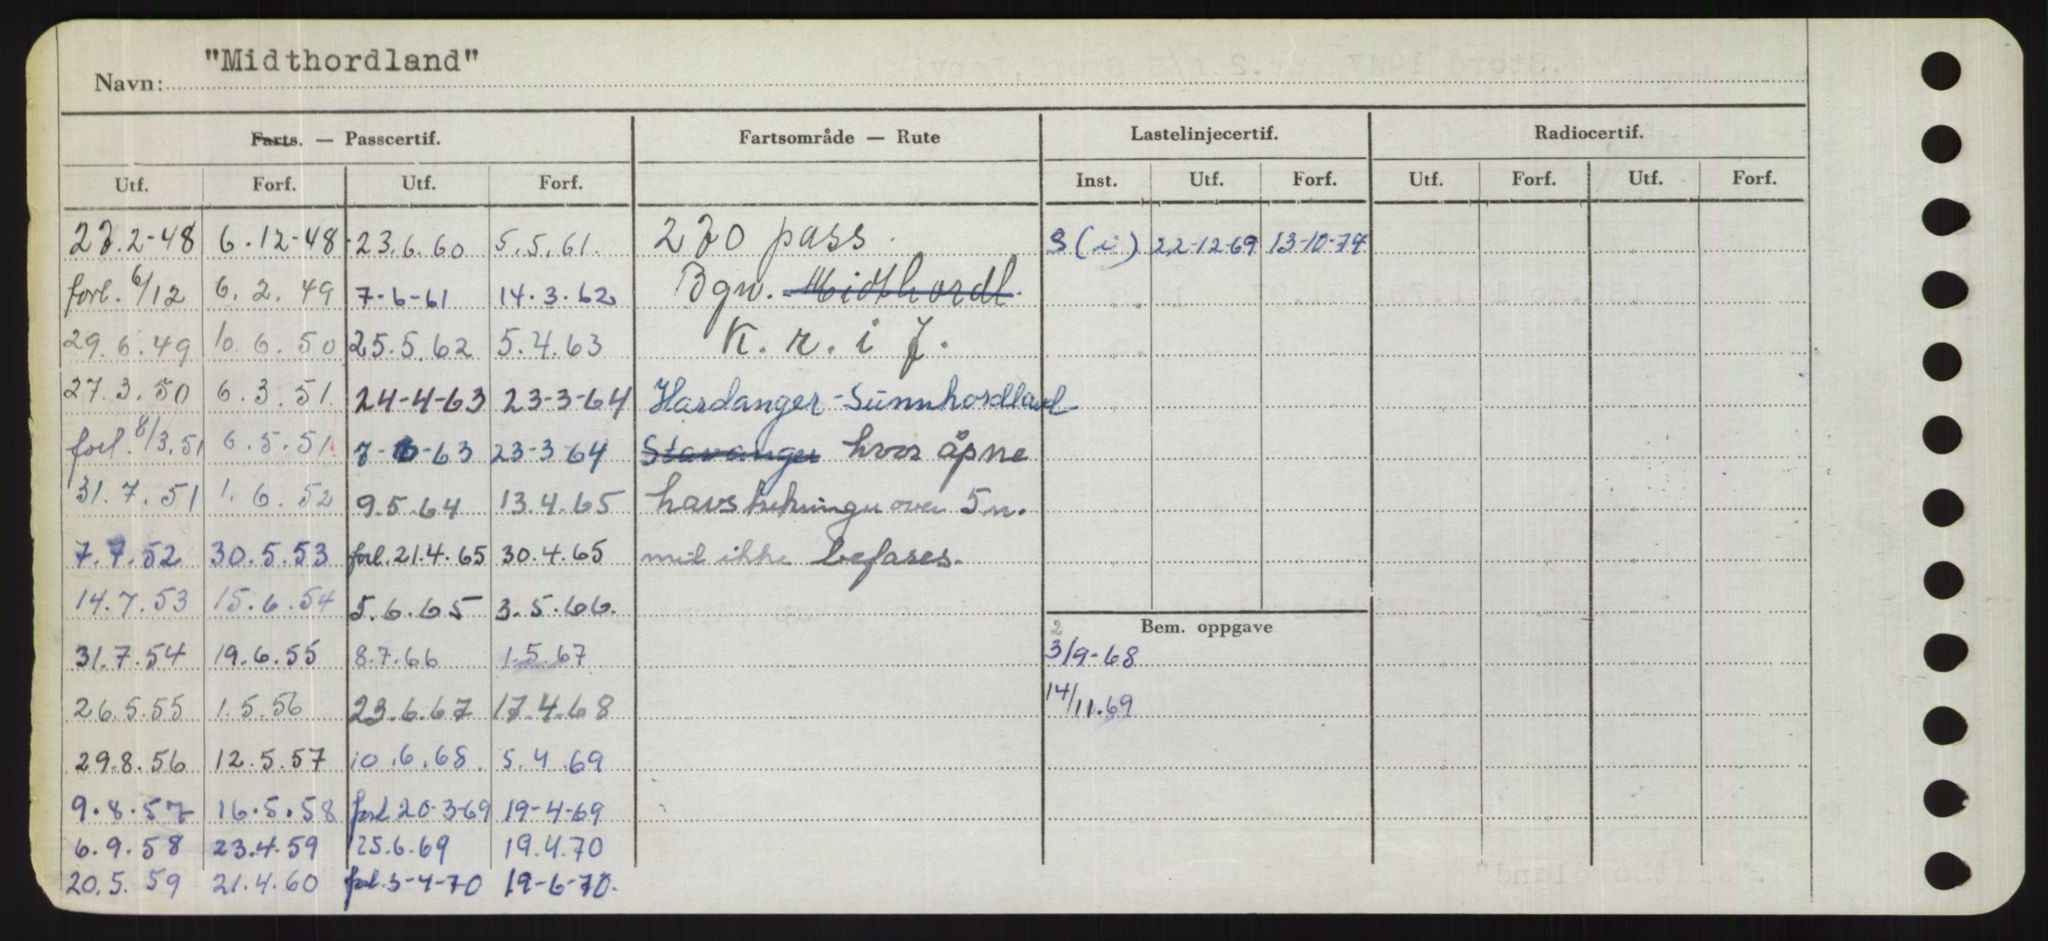 Navn: "Midthordland"
Farts. — Passcertif. Fartsområde — Rute Lastelinjecertif. Radiocertif.
Utf. Forf. Utf. Forf. Inst. Utf. Forf. Utf. Forf. Utf. Forf.
6.12-48 23.6.60 5.5.61. pass. S (i) 22-12-69 13-10-74
forl. 6/12 6.2.49 7-6-61 14.3.62 Bgn. Midthordl.
29.6.49 10.6.50 25.5.62 5.4.63 K. r. i J.
27.3.50 6.3.51. 24-4-63 23-3-64 Hardanger-Sunnhordland
forl. 8/3.51 6.5.51. 7-6-63 23-3-64 Stavanger hvor åpne
31.7.51 1.6.52 9.5.64 13.4.65 havstrekninger over 5 n.
7.7.52 30.5.53 forl. 21.4.65 30.4.65 mil ikke befares.
14.7.53 15.6.54 5.6.65 3.5.66.
Bem. oppgave
31.7.54 19.6.55 8.7.66 1.5.67 3/9-68
26.5.55 1.5.56 23.6.67 17.4.68 14/11.69
29.8.56 12.5.57 10.6.68. 5.4.69
9.8.57 16.5.58 forl 20-3-69 19-4-69
6.9.58 23.4.59 25.6.69 19.4.70
20.5.59 21.4.60 forl. 3-4-70 19-6-70.